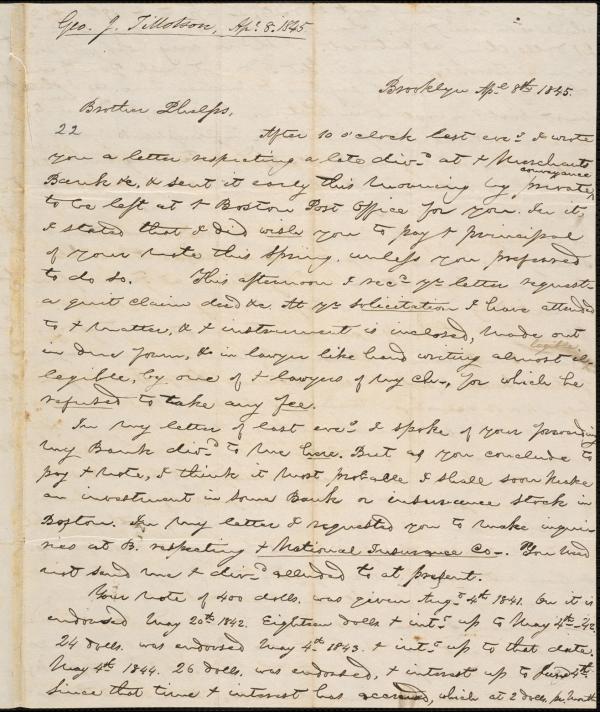 Geo. J. Tillotson, Apl. 8. 1845
Brooklyn Apl 8th 1845.
Brother Phelps,
22
After 10 o'clock last eveg I wrote
you a letter respecting a late divd at + Merchants
Bank &c, & sent it early this morning by private
conveyance
to be left at + Boston Post Office for you. In it,
I stated that I did wish you to pay + principal
of your note this Spring, unless you preferred
to do so. This afternoon I recd yr letter request-
a quit claim deed &c. At yr solicitation I have attended
to + matter, & + instrument is inclosed, made out
in due form, & in lawyer like hand writing almost
legible, by one of + lawyers of my ch-, for which he
refused to take any fee.
In my letter of last eveg I spoke of your forwarding
my Bank divd to me here. But as you conclude to
pay + note, I think it most probable I shall soon make
an investment in some Bank or insurance stock in
Boston. In my letter I requested you to make inqui-
ries at B. respecting + National Insurance Co-. You need
not send me + divd alluded to at present.
Your note of 400 dolls. was given Augt 4th 1841. On it is
endorsed May 20th 1842. Eighteen dolls + intt up to May 4th -42
24 dolls. was endorsed May 4th 1843. + intt up to that date.
May 4th 1844. 26 dolls. was endorsed, + interest up to June 4th.
Since that time + interest has accrued, which at 2 dolls. pr. Month